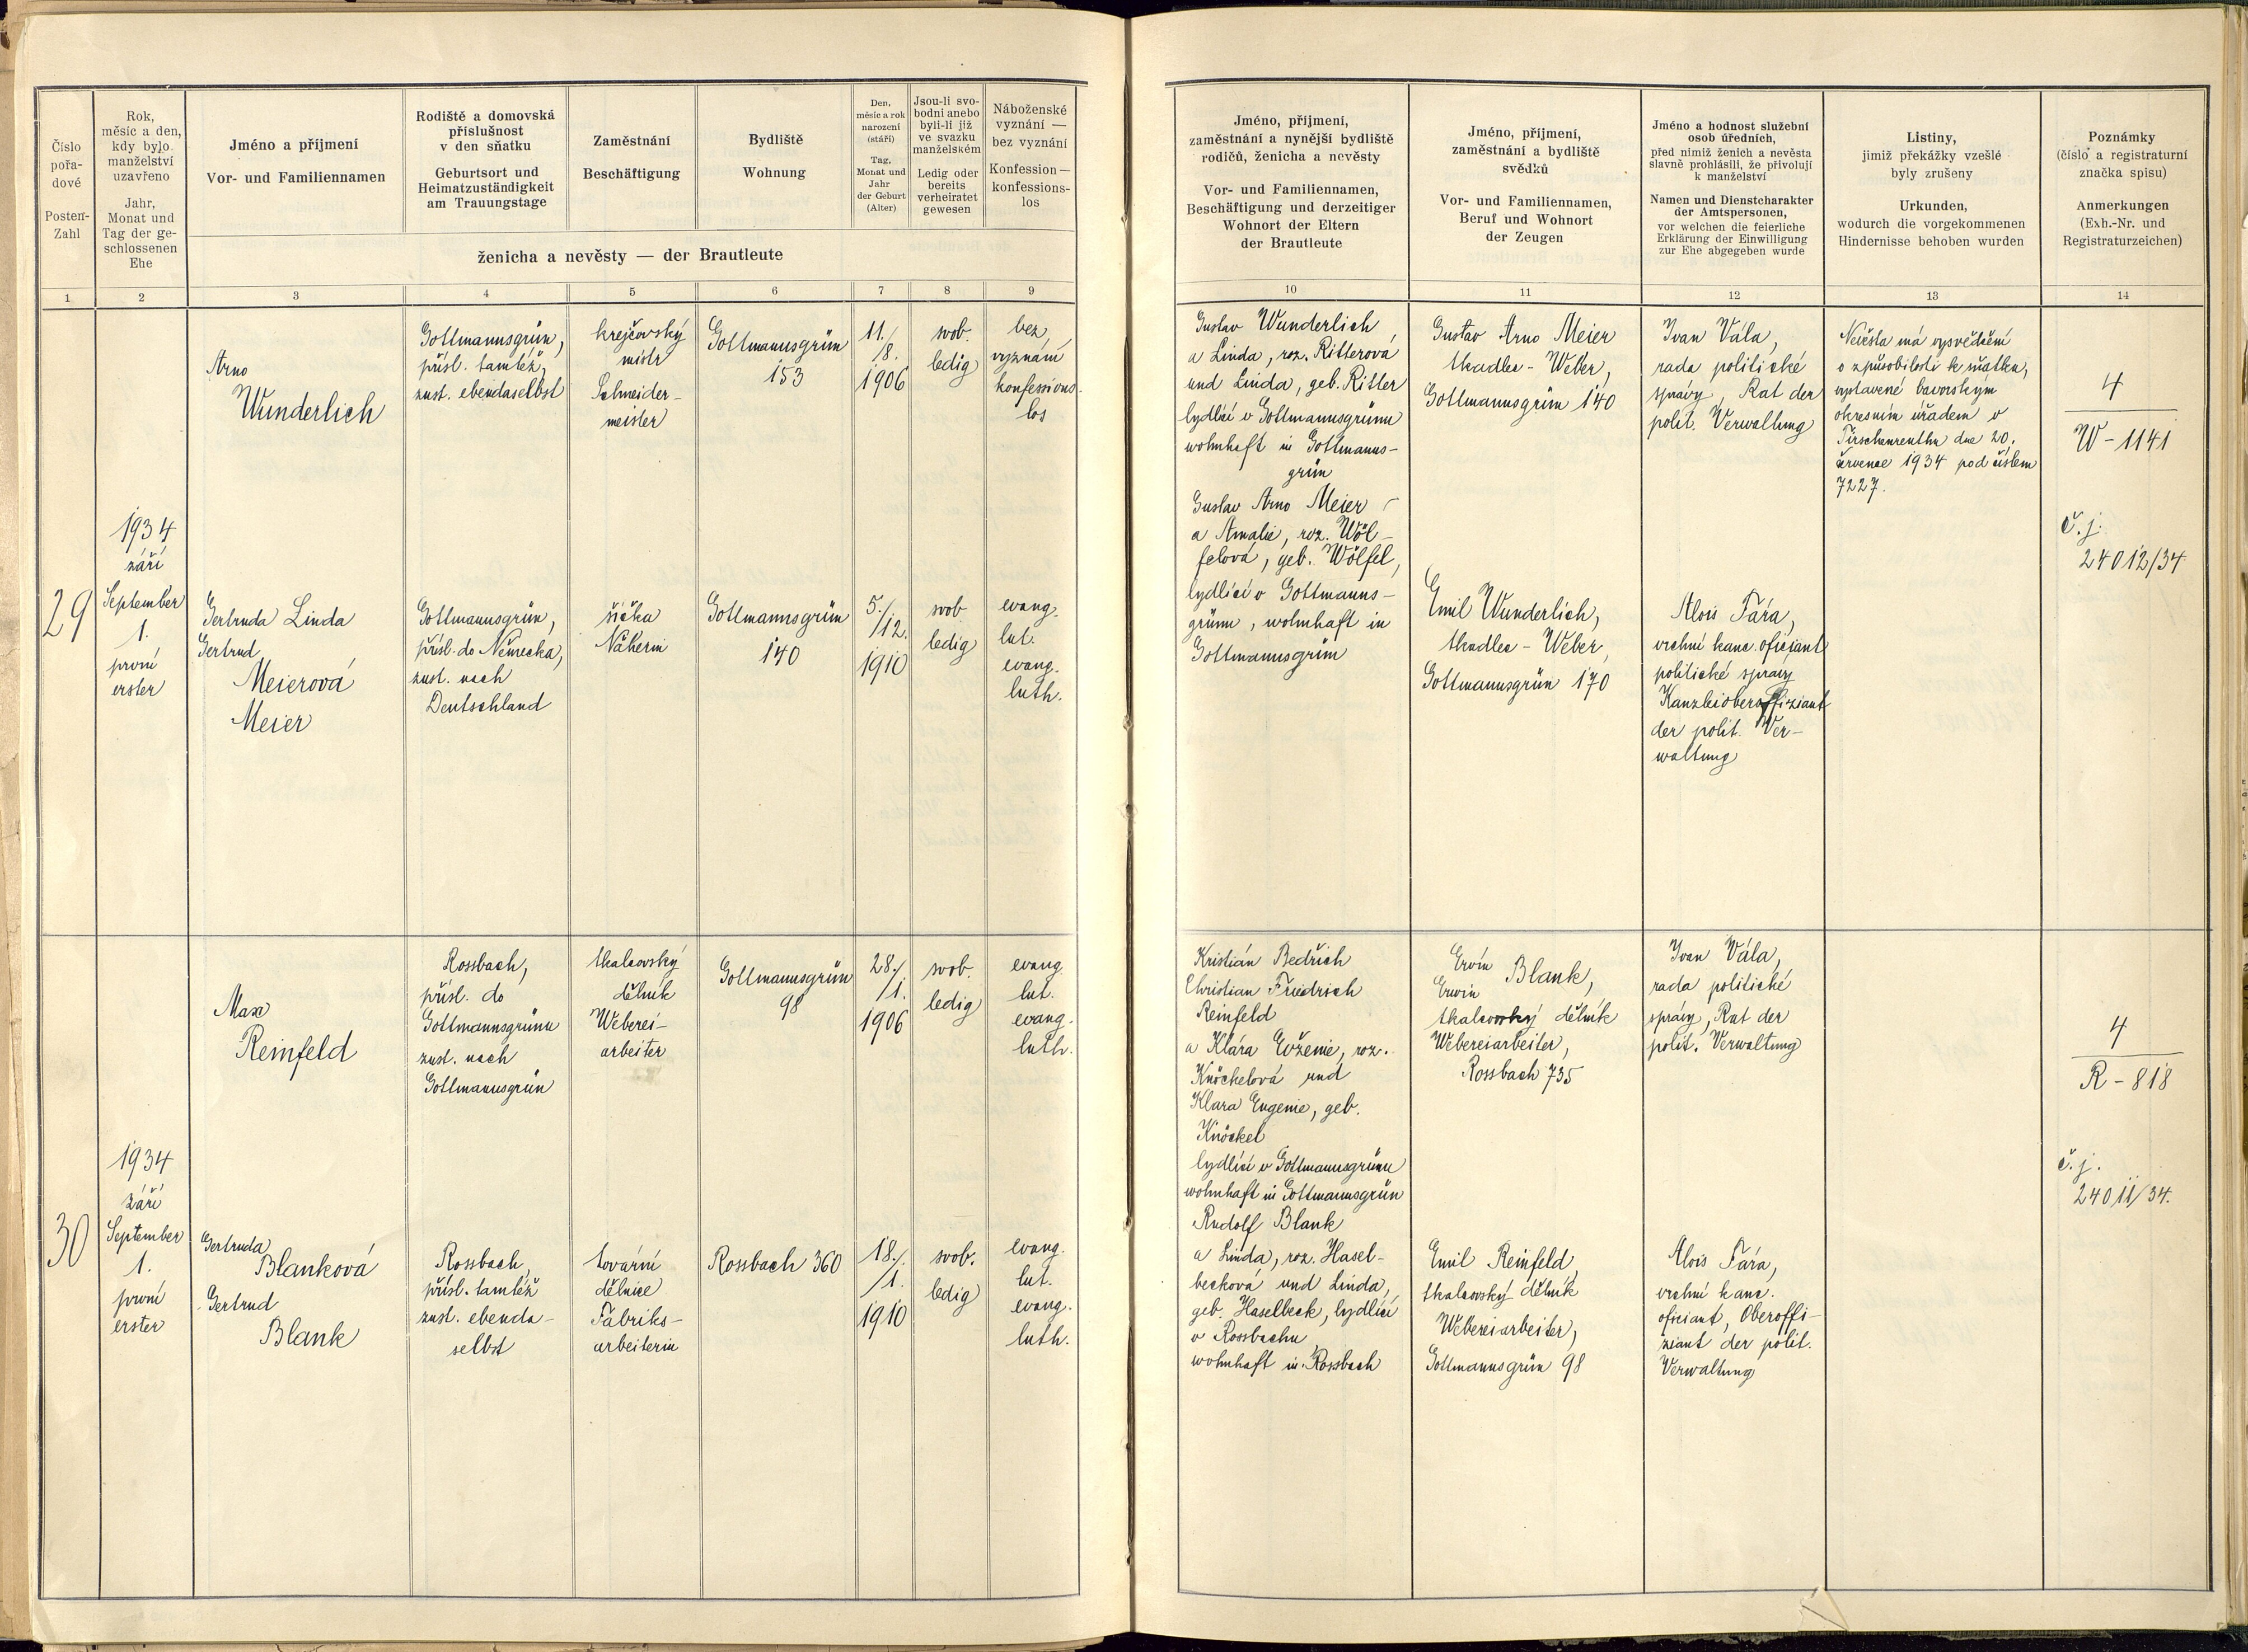 Číslo
pořa-
dové
Posten-
Zahl
Rok,
měsíc a den,
kdy bylo
manželství
uzavřeno
Jahr,
Monat und
Tag der ge-
schlossenen
Ehe
Jméno a příjmení
Vor- und Familiennamen
Rodiště a domovská
příslušnost
v den sňatku
Geburtsort und
Heimatzuständigkeit
am Trauungstage
Zaměstnání
Beschäftigung
Bydliště
Wohnung
Den,
měsíc a rok
narození
(stáří)
Tag,
Monat und
Jahr
der Geburt
(Alter)
Jsou-li svo-
bodni anebo
byli-li již
ve svazku
manželském
Ledig oder
bereits
verheiratet
gewesen
Náboženské
vyznání —
bez vyznání
Konfession —
konfessions-
los
ženicha a nevěsty — der Brautleute
1
2
3
4
5
6
7
8
9
Jméno, příjmení,
zaměstnání a nynější bydliště
rodičů, ženicha a nevěsty
Vor- und Familiennamen,
Beschäftigung und derzeitiger
Wohnort der Eltern
der Brautleute
Jméno, příjmení,
zaměstnání a bydliště
svědků
Vor- und Familiennamen,
Beruf und Wohnort
der Zeugen
Jméno a hodnost služební
osob úředních,
před nimiž ženich a nevěsta
slavně prohlásili, že přivolují
k manželství
Namen und Dienstcharakter
der Amtspersonen,
vor welchen die feierliche
Erklärung der Einwilligung
zur Ehe abgegeben wurde
Listiny,
jimiž překážky vzešlé
byly zrušeny
Urkunden,
wodurch die vorgekommenen
Hindernisse behoben wurden
Poznámky
(číslo a registraturní
značka spisu)
Anmerkungen
(Exh.-Nr. und
Registraturzeichen)
10
11
12
13
14
29
1934
září
September
1.
první
erster
Arno
Wunderlich
Gottmannsgrün,
přísl. tamtéž,
zust. ebendaselbst
krejčovský
mistr
Schneider-
meister
Gottmannsgrün
153
11./
/8.
1906
svob.
ledig
bez
vyznání
konfessions-
los
Gertruda Linda
Gertrud
Meierová
Meier
Gottmannsgrün,
přísl. do Německa,
zust. nach
Deutschland
šička
Näherin
Gottmannsgrün
140
5./
/12.
1910
svob
ledig
evang.
lut.
evang.
luth.
Gustav Wunderlich
a Linda, roz. Ritterová
und Linda, geb. Ritter
bydlící v Gottmannsgrünu
wohnhaft in Gottmanns-
grün
Gustav Arno Meier
a Amalie, roz. Wöl-
felová, geb. Wölfel,
bydlící v Gottmanns-
grünu, wohnhaft in
Gottmannsgrün
Gustav Arno Meier
tkadlec - Weber,
Gottmannsgrün 140
Emil Wunderlich,
tkadlec - Weber,
Gottmannsgrün 170
Ivan Vála,
rada politické
správy, Rat der
polit. Verwaltung
Alois Fára,
vrchní kanc. oficiant
politické správy
Kanzleioberoffiziant
der polit. Ver-
waltung
Nevěsta má vysvědčení
o způsobilosti k sňatku,
vystavené bavorským
okresním úřadem v
Tirschenreuthu dne 20.
července 1934 pod číslem
7227.
4
W - 1141
č. j.
24012/34
30
1934
září
September
1.
první
erster
Max
Reinfeld
Rossbach,
přísl. do
Gottmannsgrünu
zust. nach
Gottmannsgrün
tkalcovský
dělník
Weberei-
arbeiter
Gottmannsgrün
98
28./
/1.
1906
svob.
ledig
evang.
lut.
evang.
luth.
Gertruda
Blanková
Gertrud
Blank
Rossbach,
přísl. tamtéž
zust. ebenda-
selbst
tovární
dělnice
Fabriks-
arbeiterin
Rossbach 360
18./
/1.
1910
svob.
ledig
evang.
lut.
evang.
luth.
Kristián Bedřich
Christian Friedrich
Reinfeld
a Klára Evženie, roz.
Knöckelová und
Klara Eugenie, geb.
Knöckel
bydlící v Gottmannsgrünu
wohnhaft in Gottmannsgrün
Rudolf Blank
a Linda, roz. Hasel-
becková und Linda,
geb. Haselbeck, bydlící
v Rossbachu
wohnhaft in Rossbach
Ervín Blank,
Erwin
tkalcovský dělník
Webereiarbeiter,
Rossbach 735
Emil Reinfeld,
tkalcovský dělník
Webereiarbeiter,
Gottmannsgrün 98
Ivan Vála,
rada politické
správy, Rat der
polit. Verwaltung
Alois Fára,
vrchní kanc.
oficiant, Oberoffi-
ziant der polit.
Verwaltung
4
R - 818
č. j.
24011/34.